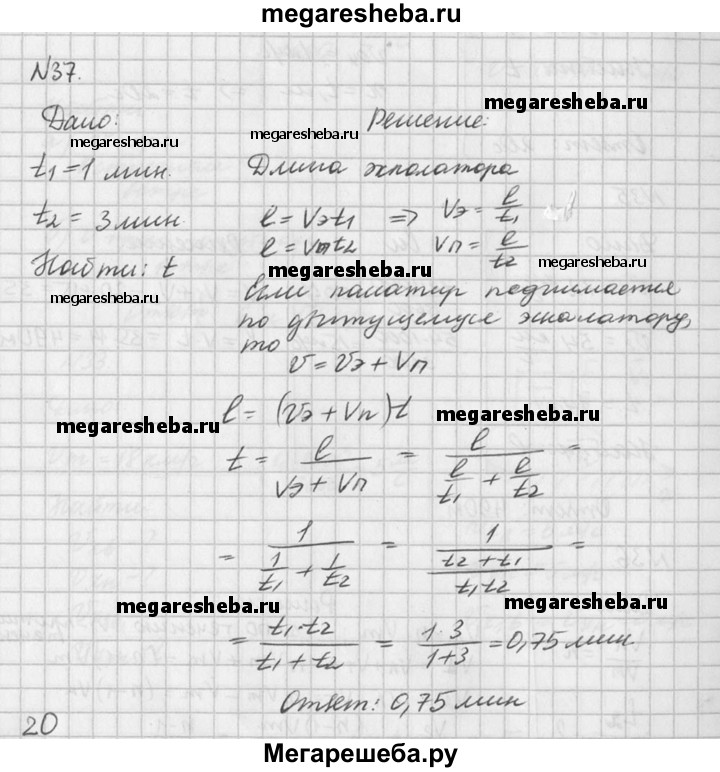 megaresheba.ru
N37.
Дано:
Решение:
megaresheba.ru
megaresheba.ru
megaresheba.ru
t₁ = 1 мин.
Длина эскалатора
t₂ = 3 мин.
l = Vэt₁ => Vэ = l/t₁
l = Vпt₂ Vп = l/t₂
megaresheba.ru
Найти: t
megaresheba.ru
megaresheba.ru
Если пассажир поднимается
по движущемуся эскалатору,
то
v = vэ + Vп
l = (vэ + Vп)t
megaresheba.ru
megaresheba.ru
t = l/(Vэ + Vп) = l/(l/t₁ + l/t₂) =
= 1/(1/t₁ + 1/t₂) = 1/((t₂ + t₁)/(t₁t₂)) =
megaresheba.ru
megaresheba.ru
= (t₁·t₂)/(t₁ + t₂) = (1·3)/(1+3) = 0,75 мин.
Ответ: 0,75 мин
20
Мегарешеба.ру